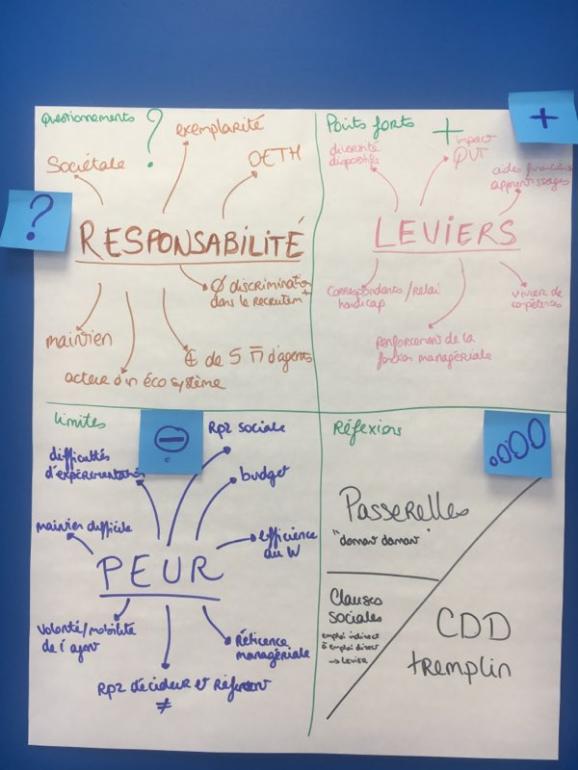 Questionnements ?
exemplarité
Sociétale
OETH
?
RESPONSABILITÉ
Ø discrimination
dans le recrutemt
maintien
⊕ de 5 d'agents
acteur d'un éco système
Points forts +
+
diversité
dispositifs
impact
QVT
aides financières
apprentissages
LEVIERS
correspondants / relai
handicap
vivier de
compétences
renforcement de la
fonction managériale
Limites
-
Rpz sociale
difficultés
d'expérimentation
budget
maintien difficile
efficience
du W
PEUR
Volonté/mobilité
de l'agent
Réticence
managériale
Rpz décideur et référent
≠
Réflexions
oooo
Passerelles
"donnant donnant"
Clauses
sociales
emploi indirect
à emploi direct
→ Levier
CDD
tremplin